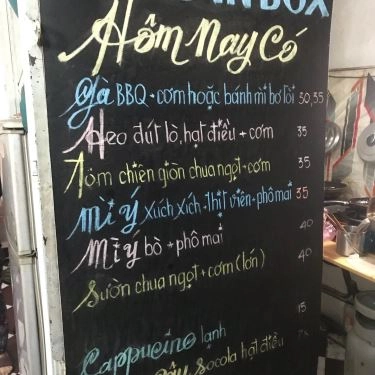 IN BOX
Hôm Nay Có
Gà BBQ + cơm hoặc bánh mì bơ tỏi 30,35
Heo đút lò, hạt điều + cơm 35
Tôm chiên giòn chua ngọt + cơm 35
Mì Ý Xúc Xích + thịt viên + phô mai 35
Mì Ý bò + phô mai 40
Sườn chua ngọt + cơm (lớn) 40
15
Cappucino lạnh
Socola hạt điều